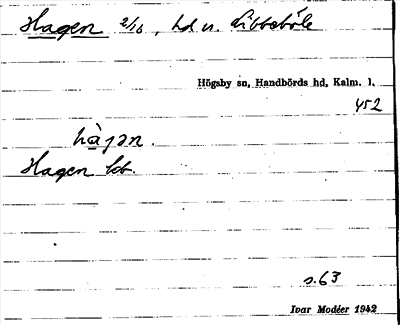 Hagen 2/16, hd u. Libbeböle
Högsby sn, Handbörds hd, Kalm. l.
452
hàgən.
Hagen ldt.
s.63
Ivar Modéer 1942